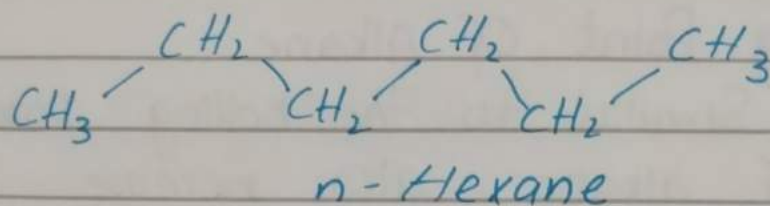 CH2 CH2 CH3
CH3 CH2 CH2
n - Hexane